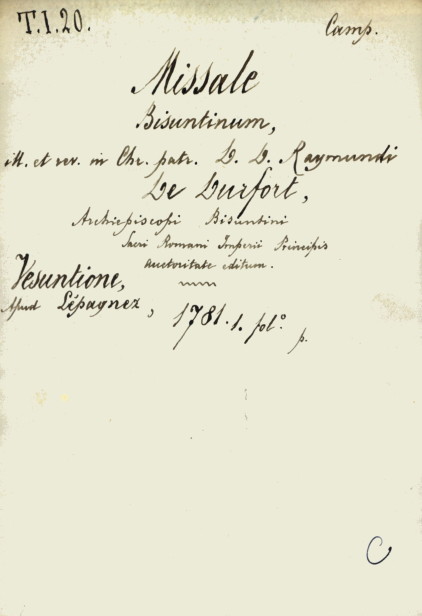 T.I.20. Camp.
Missale
Bisuntinum,
ill. et rev. in Chr. patr. D. D. Raymundi
De Durfort,
Archiepiscopi Bisuntini
Sacri Romani Imperii Principis
auctoritate editum.
Vesuntione,
Apud Lépagnez, 1781. 1. fol.º
p.
C